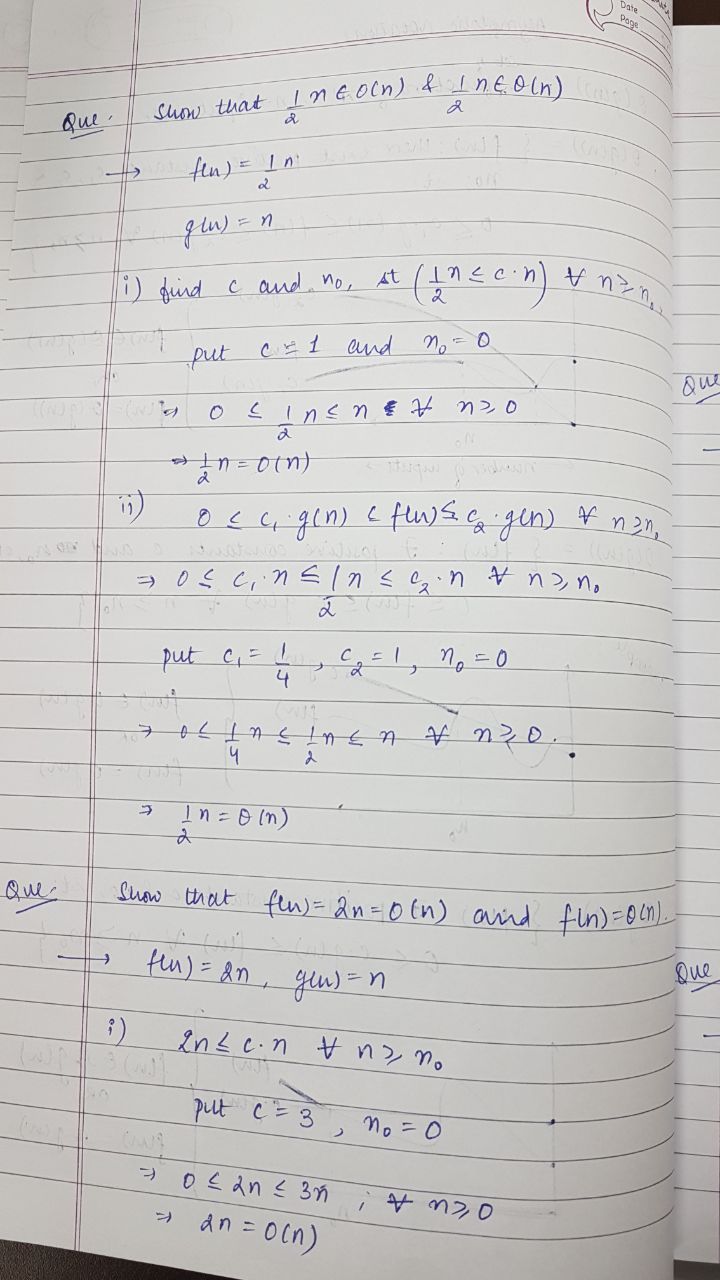 Date
Page
Que. Show that 1/2 n ∈ O(n) & 1/2 n ∈ θ(n)
→ f(n) = 1/2 n
g(n) = n
i) find c and n₀, st (1/2 n ≤ c·n) ∀ n ≥ n₀
put c = 1 and n₀ = 0
⇒ 0 ≤ 1/2 n ≤ n ∀ n ≥ 0
⇒ 1/2 n = O(n)
ii) 0 ≤ c₁·g(n) ≤ f(n) ≤ c₂·g(n) ∀ n ≥ n₀
⇒ 0 ≤ c₁·n ≤ 1/2 n ≤ c₂·n ∀ n ≥ n₀
put c₁ = 1/4, c₂ = 1, n₀ = 0
⇒ 0 ≤ 1/4 n ≤ 1/2 n ≤ n ∀ n ≥ 0.
⇒ 1/2 n = θ(n)
Que. Show that f(n) = 2n = O(n) and f(n) = θ(n).
→ f(n) = 2n, g(n) = n
i) 2n ≤ c·n ∀ n ≥ n₀
put c = 3, n₀ = 0
⇒ 0 ≤ 2n ≤ 3n ; ∀ n ≥ 0
⇒ 2n = O(n)
Que
Que